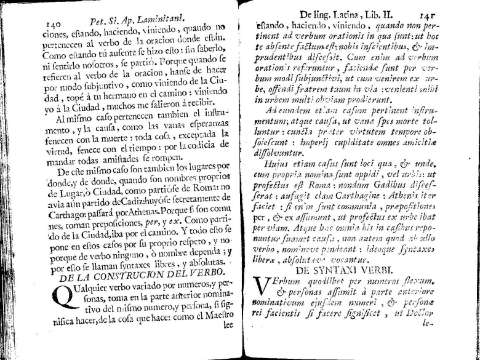 140 Pet. Si. Ap. Laminitani.
ciones, estando, haciendo, viniendo, quando no
pertenecen al verbo de la oracion donde están.
Como estando tú ausente se hizo esto: sin saberlo,
ni sentirlo nosotros, se partió. Porque quando se
refieren al verbo de la oracion, hanse de hacer
por modo subjuntivo, como viniendo de la Ciu-
dad, topé à tu hermano en el camino: viniendo
yo á la Ciudad, muchos me salieron à recibir.
Al mismo caso pertenecen tambien el instru-
mento, y la causa, como las vanas esperanzas
fenecen con la muerte: toda cosa, exceptada la
virtud, fenece con el tiempo: por la codicia de
mandar todas amistades se rompen.
De este mismo caso son tambien los lugares por
donde, y de donde, quando son nombres proprios
de Lugar, ò Ciudad, como partióse de Roma: no
avia aún partido de Cadiz: huyóse secretamente de
Carthago: passará por Athenas. Porque si son comu-
nes, toman preposiciones, per, y ex. Como parti-
do de la Ciudad, iba por el camino. Y todo esto se
pone en estos casos por su proprio respeto, y no
porque de verbo ninguno, ò nombre dependa; y
por esso se llaman syntaxes libres, y absolutas.
DE LA CONSTRUCION DEL VERBO.
QUalquier verbo variado por numeros, y per-
sonas, toma en la parte anterior nomina-
tivo del mismo numero, y persona, si sig-
nifica hacer, de la cosa que hace: como el Maestro
lee
De ling. Latina, Lib. II. 141
estando, haciendo, viniendo, quando non per-
tinent ad verbum orationis in qua sunt: ut hoc
te absente factum est: nobis inscientibus, & im-
prudentibus discessit. Cum enim ad verbum
orationis referuntur, facienda sunt per ver-
bum modi subjunctivi, ut cum venirem ex ur-
be, offendi fratrem tuum in via: venienti mihi
in urbem multi obviam prodierunt.
Ad eundem etiam casum pertinent instru-
mentum, atque causa, ut vana spes morte tol-
luntur: cuncta præter virtutem tempore ob-
solescunt: imperii cupiditate omnes amicitiæ
dissolventur.
Hujus etiam casus sunt loci qua, & unde,
cum propria nomina sunt oppidi, vel urbis: ut
profectus est Roma: nondum Gadibus disces-
serat: aufugit clam Carthagine: Athenis iter
faciet: si eis sunt communia, prepositiones
per, & ex assumunt, ut profectus ex urbe ibat
per viam. Atque hæc omnia his in casibus repo-
nuntur suomet causa, non autem quod ab ullo
verbo, nomineve pendeant: ideoque syntaxes
liberæ, absolutæ vocantur.
DE SYNTAXI VERBI.
VErbum quodlibet per numeros flexum,
& personas assumit à parte anteriore
nominativum ejusdem numeri, & personæ
rei facientis si facere significet, ut Doctor
le-